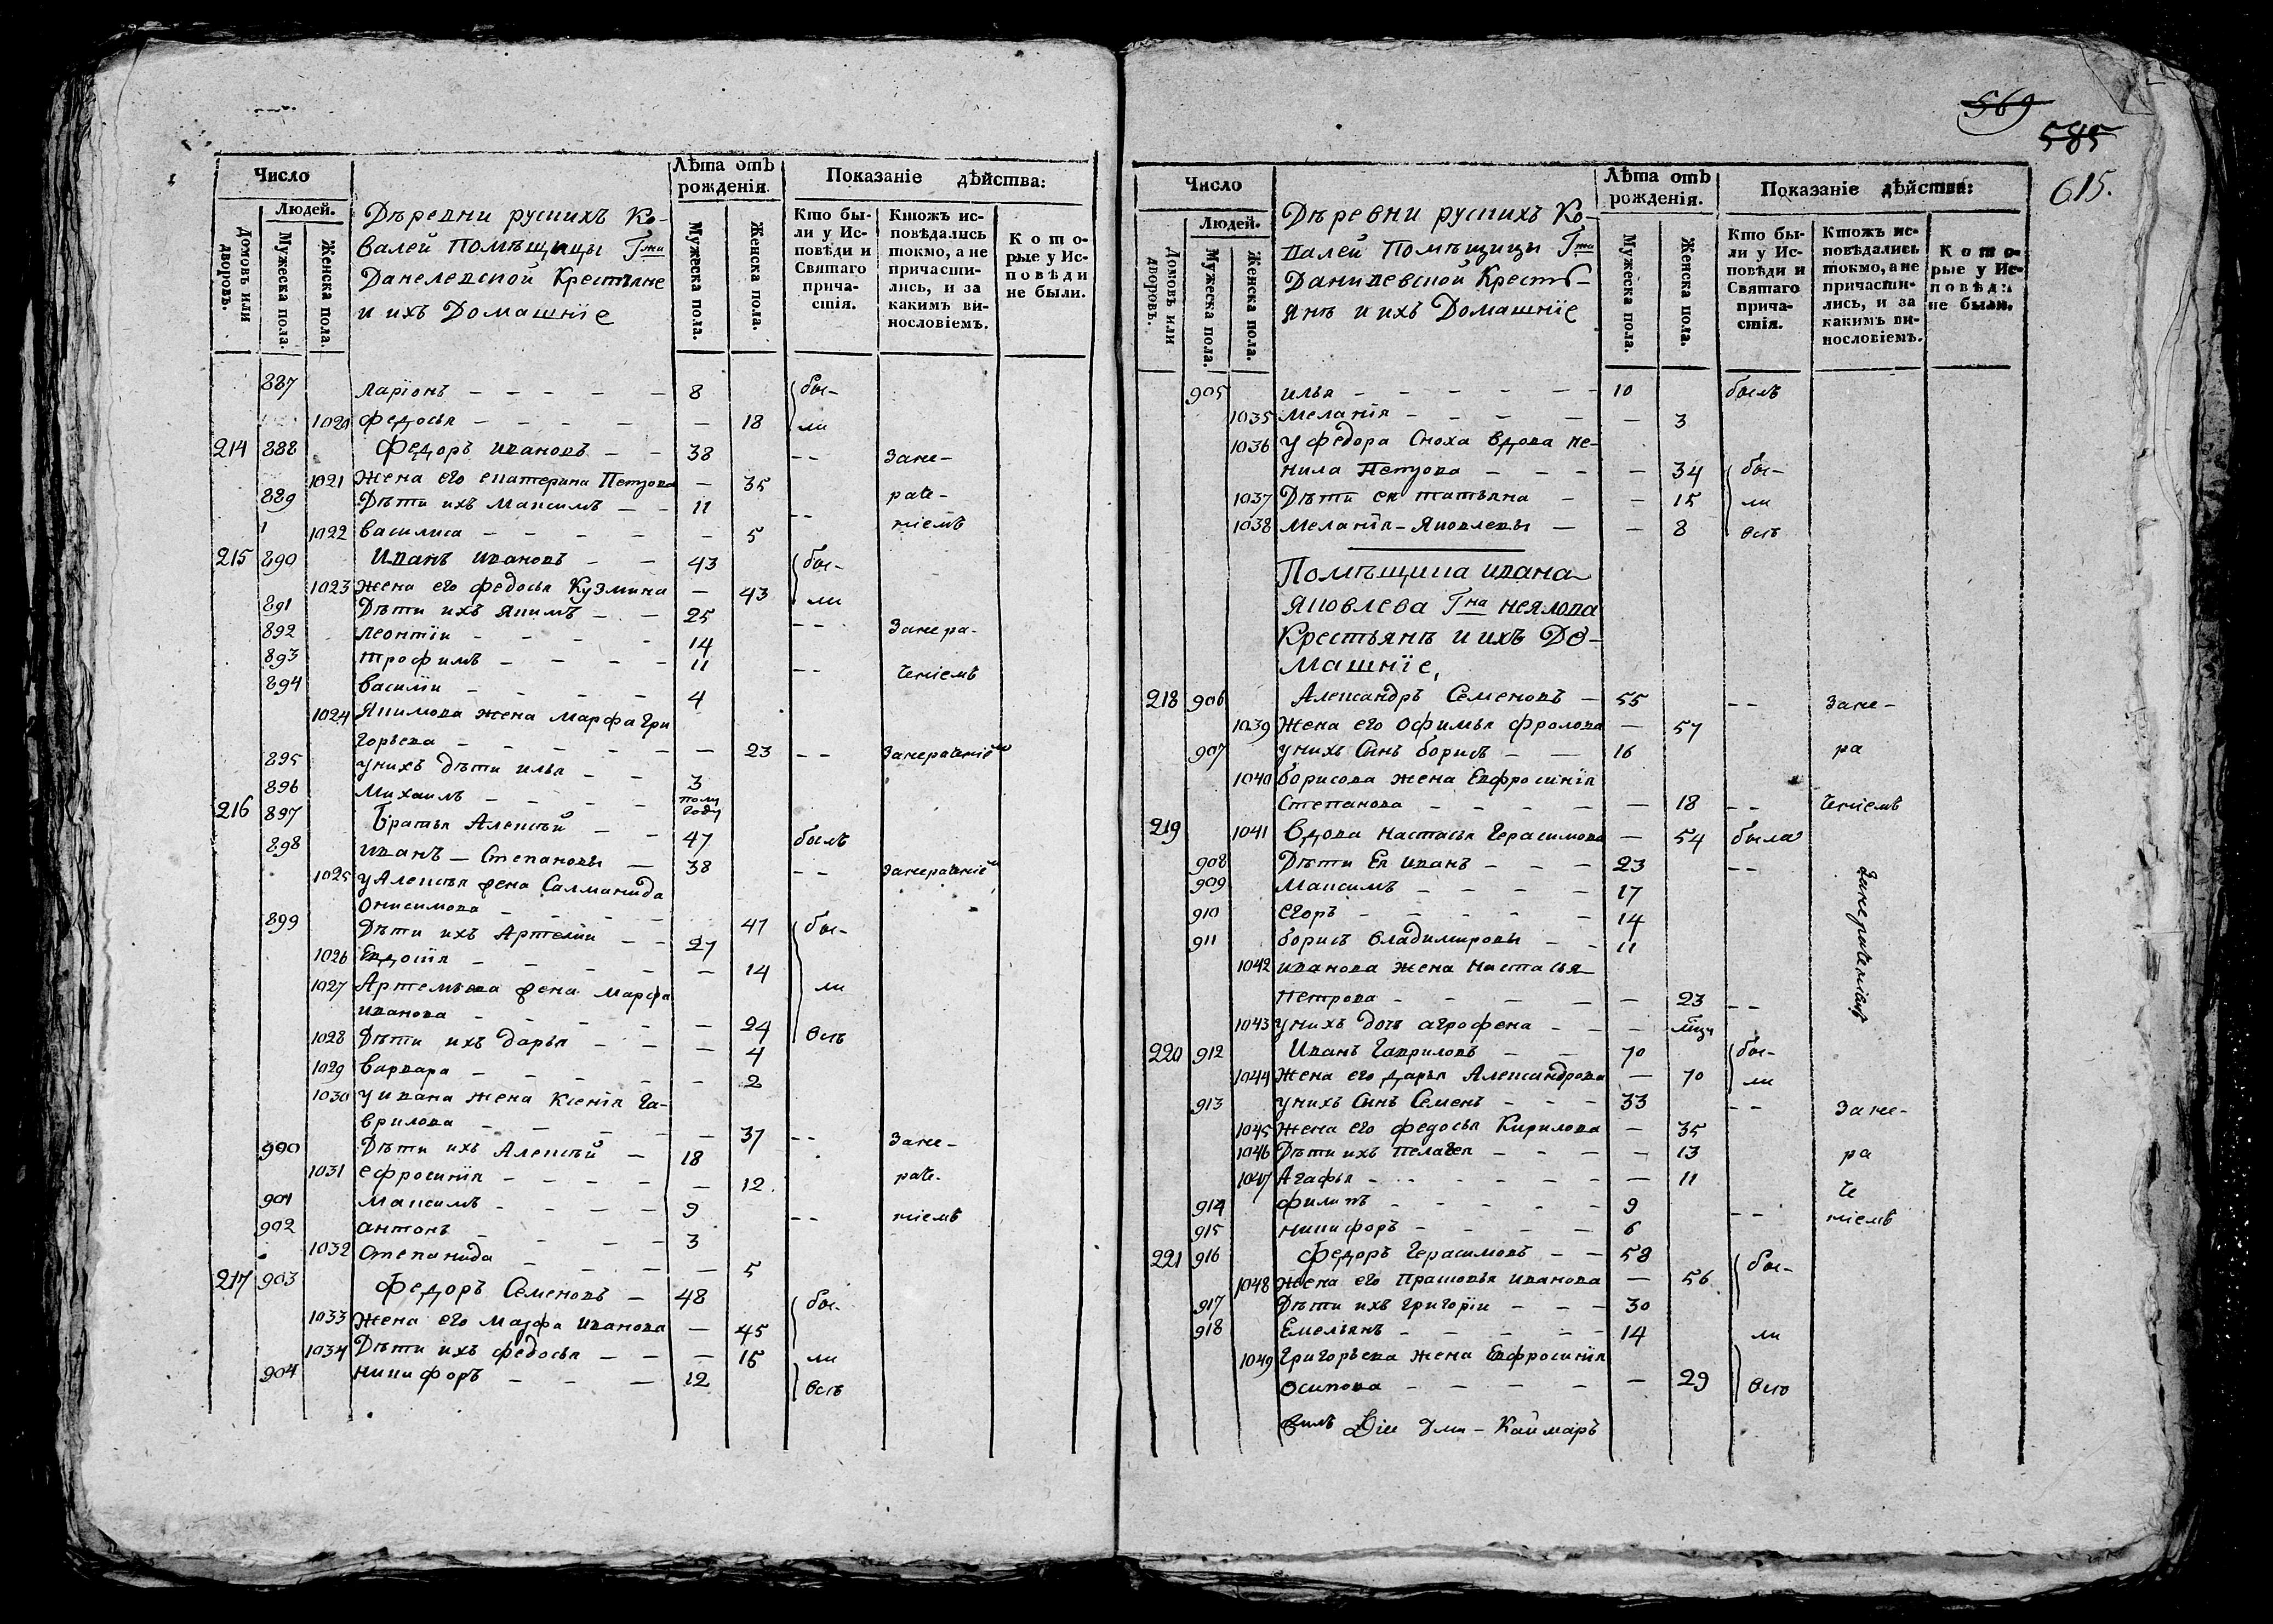 Число
Людей.
Домовъ или дворовъ.
Мужеска пола.
Женска пола.
Деревни руских Ко-
валей Помѣщицы Гжи
Данелевской Крестьяне
и ихъ Домашніе
Лѣта отъ рожденія.
Мужеска пола.
Женска пола.
Показаніе дѣйства:
Кто бы-
ли у Ис-
повѣди и
Святаго
прича-
стія.
Ктожъ ис-
повѣдались
токмо, а не
причасти-
лись, и за
какимъ ви-
нословіемъ.
Кото-
рые у Ис-
повѣди
не были.
887 ларіонъ 8 бы-
1020 федосья 18 ли
214 888 Федоръ иванов 38 Зане-
1021 Жена его екатерина Петрова 35
889 Дѣти ихъ Максимъ 11 раче-
1022 василиса 5 ніемъ
215 890 Иванъ иванов 43 бы-
1023 Жена его федосья Кузмина 43 ли
891 Дѣти ихъ якимъ 25
892 леонтіи 14 Занера-
893 трофимъ 11
894 василіи 4 ченіемъ
1024 Якимова жена марфа гри
горьева 23 Занераченіем
895 у нихъ дѣти илья 3
896 Михаилъ полу году
216 897 Братья Алексѣй 47 былъ
898 иванъ – Степановы 38 занераченіем
1025 у Алексѣя жена Саламанида
Онисимова 47 бы-
899 Дѣти ихъ Артеміи 27
1026 Евдокія 14
1027 Артемьева жена марфа ли
иванова 24
1028 Дѣти ихъ дарья 4 всѣ
1029 варвара 2
1030 у ивана жена Ксенія га-
врилова 37 Зане-
900 Дѣти ихъ Алексѣй 18
1031 ефросинія 12 раче-
901 Максимъ 9
902 антонъ 3 ніемъ
1032 Степанида 5
217 903 Федоръ Семенов 48 бы-
1033 Жена его марфа иванова 45
1034 Дѣти ихъ федосья 15 ли
904 никифоръ 12 всѣ
569
585
615.
Число
Людей.
Домовъ или дворовъ.
Мужеска пола.
Женска пола.
Деревни руских Ко-
валей Помѣщицы Гжи
Данилевской Кресть-
янъ и ихъ Домашніе
Лѣта отъ рожденія.
Мужеска пола.
Женска пола.
Показаніе дѣйства:
Кто бы-
ли у Ис-
повѣди и
Святаго
прича-
стія.
Ктожъ ис-
повѣдались
токмо, а не
причасти-
лись, и за
какимъ ви-
нословіемъ.
Кото-
рые у Ис-
повѣди
не были.
905 илья 10 былъ
1035 Меланія 3
1036 у федора Сноха вдова не-
нила Петрова 34 бы-
1037 Дѣти ея татьяна 15 ли
1038 Меланія – Яковлевы 8 всѣ
Помѣщика ивана
яковлева Гна неялова
Крестьянъ и ихъ До-
машніе,
218 906 Александръ Семенов 55 Зане-
1039 Жена его офимья фролова 57
907 у нихъ Сынъ борисъ 16 ра
1040 борисова жена Евфросинія
Степанова 18 ченіемъ
219 1041 Вдова настасья герасимова 54 была
908 Дѣти Ея иванъ 23
909 Максимъ 17
910 егоръ 14
911 борисъ владимировы 11
занераченіемъ
1042 иванова жена настасья
петрова 23
1043 у нихъ дочь агрофена
220 912 Иванъ гаврилов 70 бы-
1044 Жена его дарья Александрова 70 ли
913 у нихъ Сынъ Семенъ 33 Зане-
1045 Жена его федосья Кирилова 35
1046 Дѣти ихъ пелагея 13 ра
1047 Агафья 11
914 филипъ 9 че
915 никифоръ 6 ніемъ
221 916 Федоръ герасимов 58 бы-
1048 Жена его Прасковья иванова 56
917 Дѣти ихъ григоріи 30
918 Емельянъ 14 ли
1049 Григорьева жена Евфросинія
осипова 29 всѣ